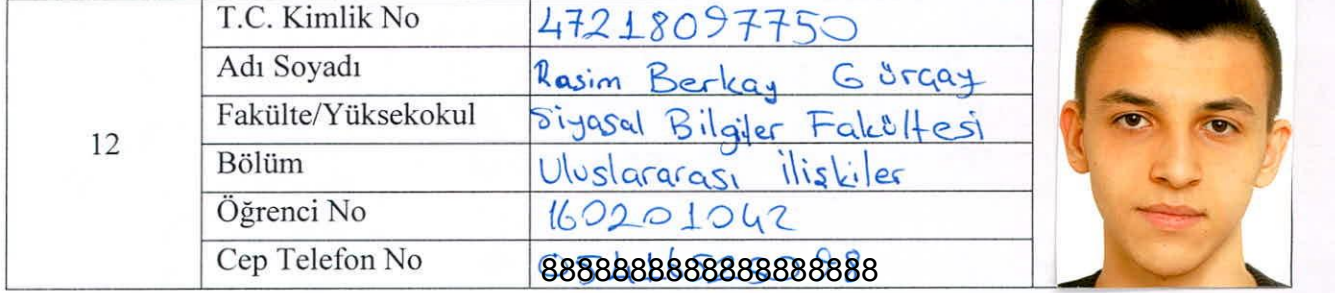 T.C. Kimlik No 47218097750
Adı Soyadı Rasim Berkay Gürçay
Fakülte/Yüksekokul Siyasal Bilgiler Fakültesi
12
Bölüm Uluslararası ilişkiler
Öğrenci No 160201042
Cep Telefon No